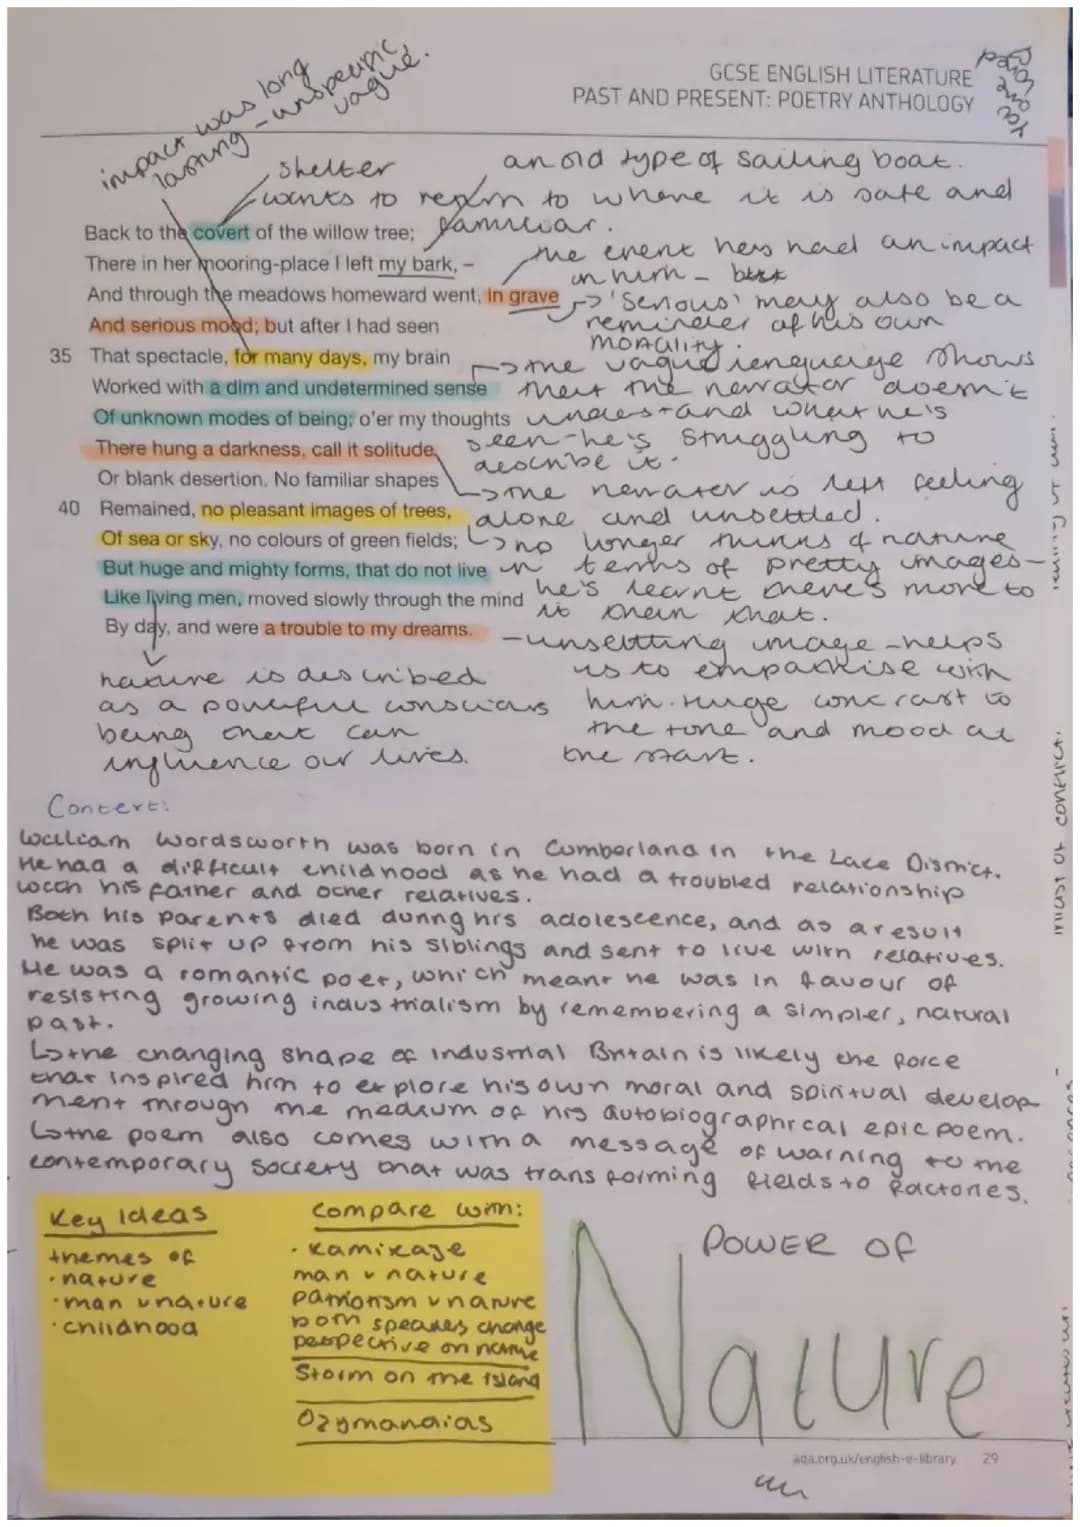 GCSE ENGLISH LITERATURE
PAST AND PRESENT: POETRY ANTHOLOGY
impact was long
lasting - unspecific,
vague.
shelter
an old type of sailing boat.
wants to return to where it is safe and
familiar.
Back to the covert of the willow tree;
There in her mooring-place I left my bark, –
the event has had an impact
on him -
And through the meadows homeward went, in grave
'serious' may also be a
And serious mood; but after I had seen
reminder of his own
morality.
35 That spectacle, for many days, my brain
the vague language shows
Worked with a dim and undetermined sense
that the narrator doesn't
Of unknown modes of being; o'er my thoughts
understand what he's
There hung a darkness, call it solitude
seen - he's struggling to
describe it.
Or blank desertion. No familiar shapes
the narrator is left feeling
40 Remained, no pleasant images of trees,
alone and unsettled.
Of sea or sky, no colours of green fields;
no longer thinks of nature
But huge and mighty forms, that do not live
in terms of pretty images -
Like living men, moved slowly through the mind
he's learnt there's more to
it than that.
By day, and were a trouble to my dreams.
- unsettling image - helps
us to empathise with
him. Huge contrast to
the tone and mood at
the start.
nature is described
as a powerful conscious
being that can
influence our lives.
Context:
William Wordsworth was born in Cumberland in the Lake District.
He had a difficult childhood as he had a troubled relationship
with his father and other relatives.
Both his parents died during his adolescence, and as a result
he was split up from his siblings and sent to live with relatives.
He was a romantic poet, which meant he was in favour of
resisting growing industrialism by remembering a simpler, natural
past.
the changing shape of industrial Britain is likely the force
that inspired him to explore his own moral and spiritual develop
ment through the medium of his autobiographical epic poem.
the poem also comes with a message of warning to the
contemporary society that was transforming fields to factories.
Key Ideas
themes of
· nature
· man v nature
· childhood
Compare with:
· Kamikaze
man v nature
patriotism v nature
both speakers change
perspective on nature
Storm on the Island
Ozymandias
POWER OF
Nature
aqa.org.uk/english-e-library 29